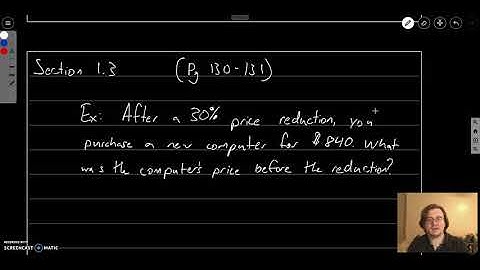 Section 1.3 (Pg 130-131)
Ex: After a 30% price reduction, you
purchase a new computer for $840. What
was the computer's price before the reduction?
RECORDED WITH
SCREENCAST MATIC